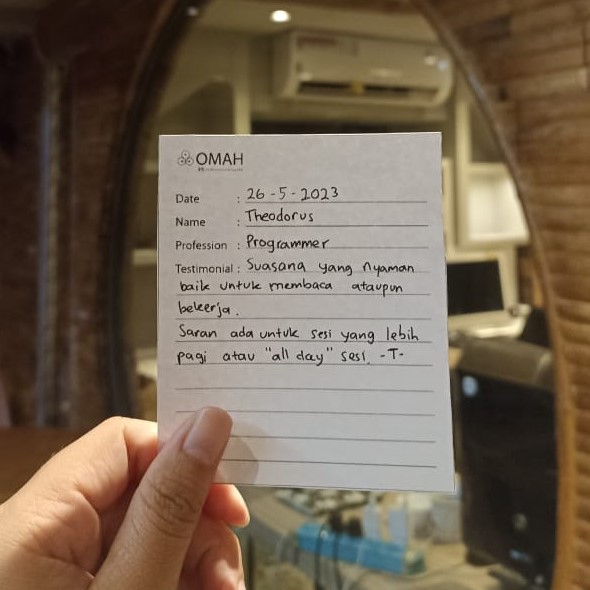 OMAH
Date : 26-5-2023
Name : Theodorus
Profession : Programmer
Testimonial : Suasana yang nyaman
baik untuk membaca ataupun
bekerja.
Saran ada untuk sesi yang lebih
pagi atau "all day" sesi. -T-